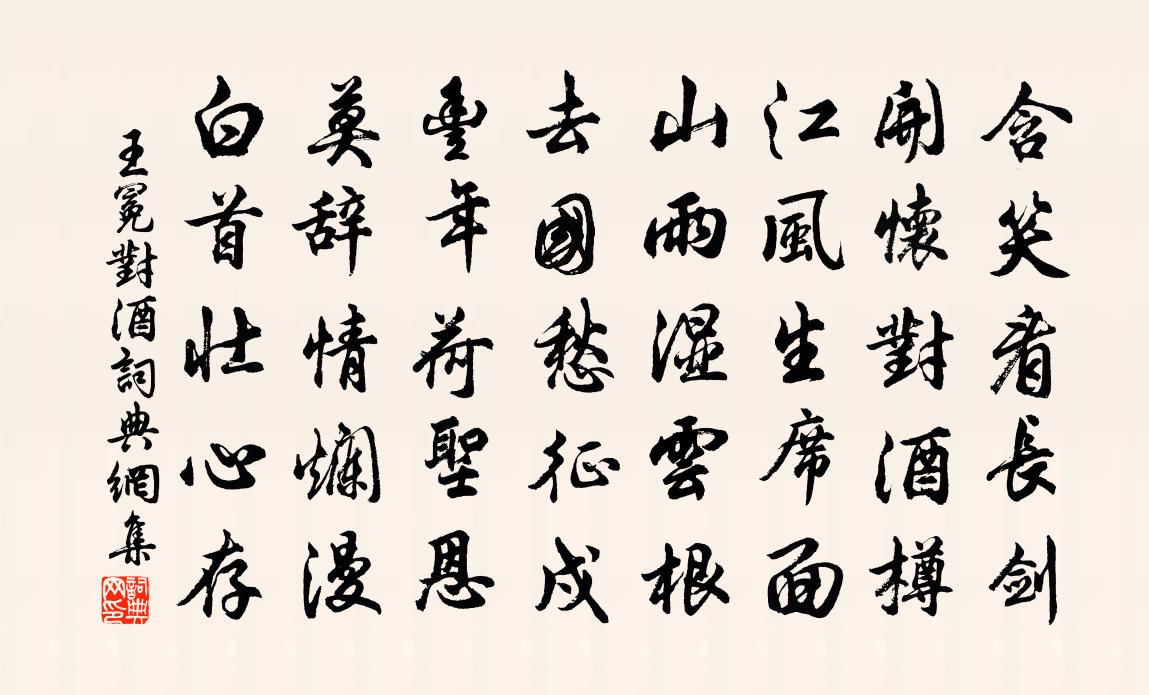 含笑看長劍
開懷對酒樽
江風生席面
山雨湿雲根
去國愁征戍
豐年荷聖恩
莫辞情爛漫
白首壯心存
王冕對酒詞典網集
詞典